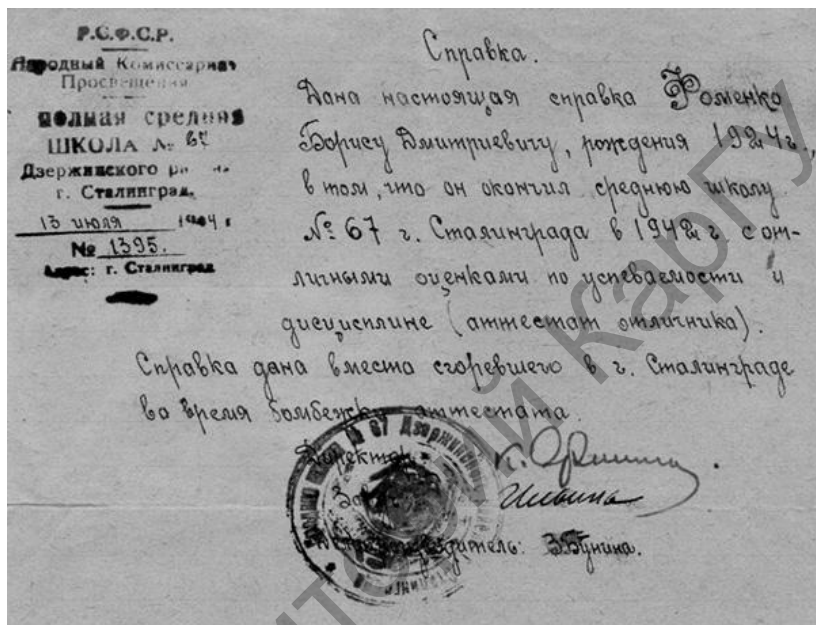 Р.С.Ф.С.Р.
Народный Комиссариат
Просвещения
ПОЛНАЯ средняя
ШКОЛА № 67
Дзержинского
г. Сталинград.
13 июля 1944 г
№ 1395.
Адрес: г. Сталинград
Справка.
Дана настоящая справка Фоменко
Борису Дмитриевичу, рождения 1924 г.,
в том, что он окончил среднюю школу
№ 67 г. Сталинграда в 1942 г. с от-
личными оценками по успеваемости и
дисциплине (аттестат отличника).
Справка дана вместо сгоревшего в г. Сталинграде
во время бомбежки аттестата.
Директор
Ильина
руководитель: З.Бунина.
№ 67 Дзержинского
КарГУ